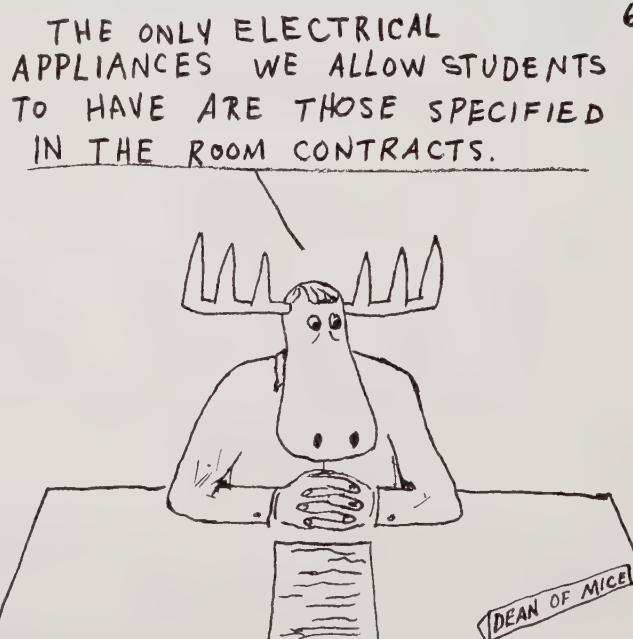 6
THE ONLY ELECTRICAL
APPLIANCES WE ALLOW STUDENTS
TO HAVE ARE THOSE SPECIFIED
IN THE ROOM CONTRACTS.
DEAN OF MICE